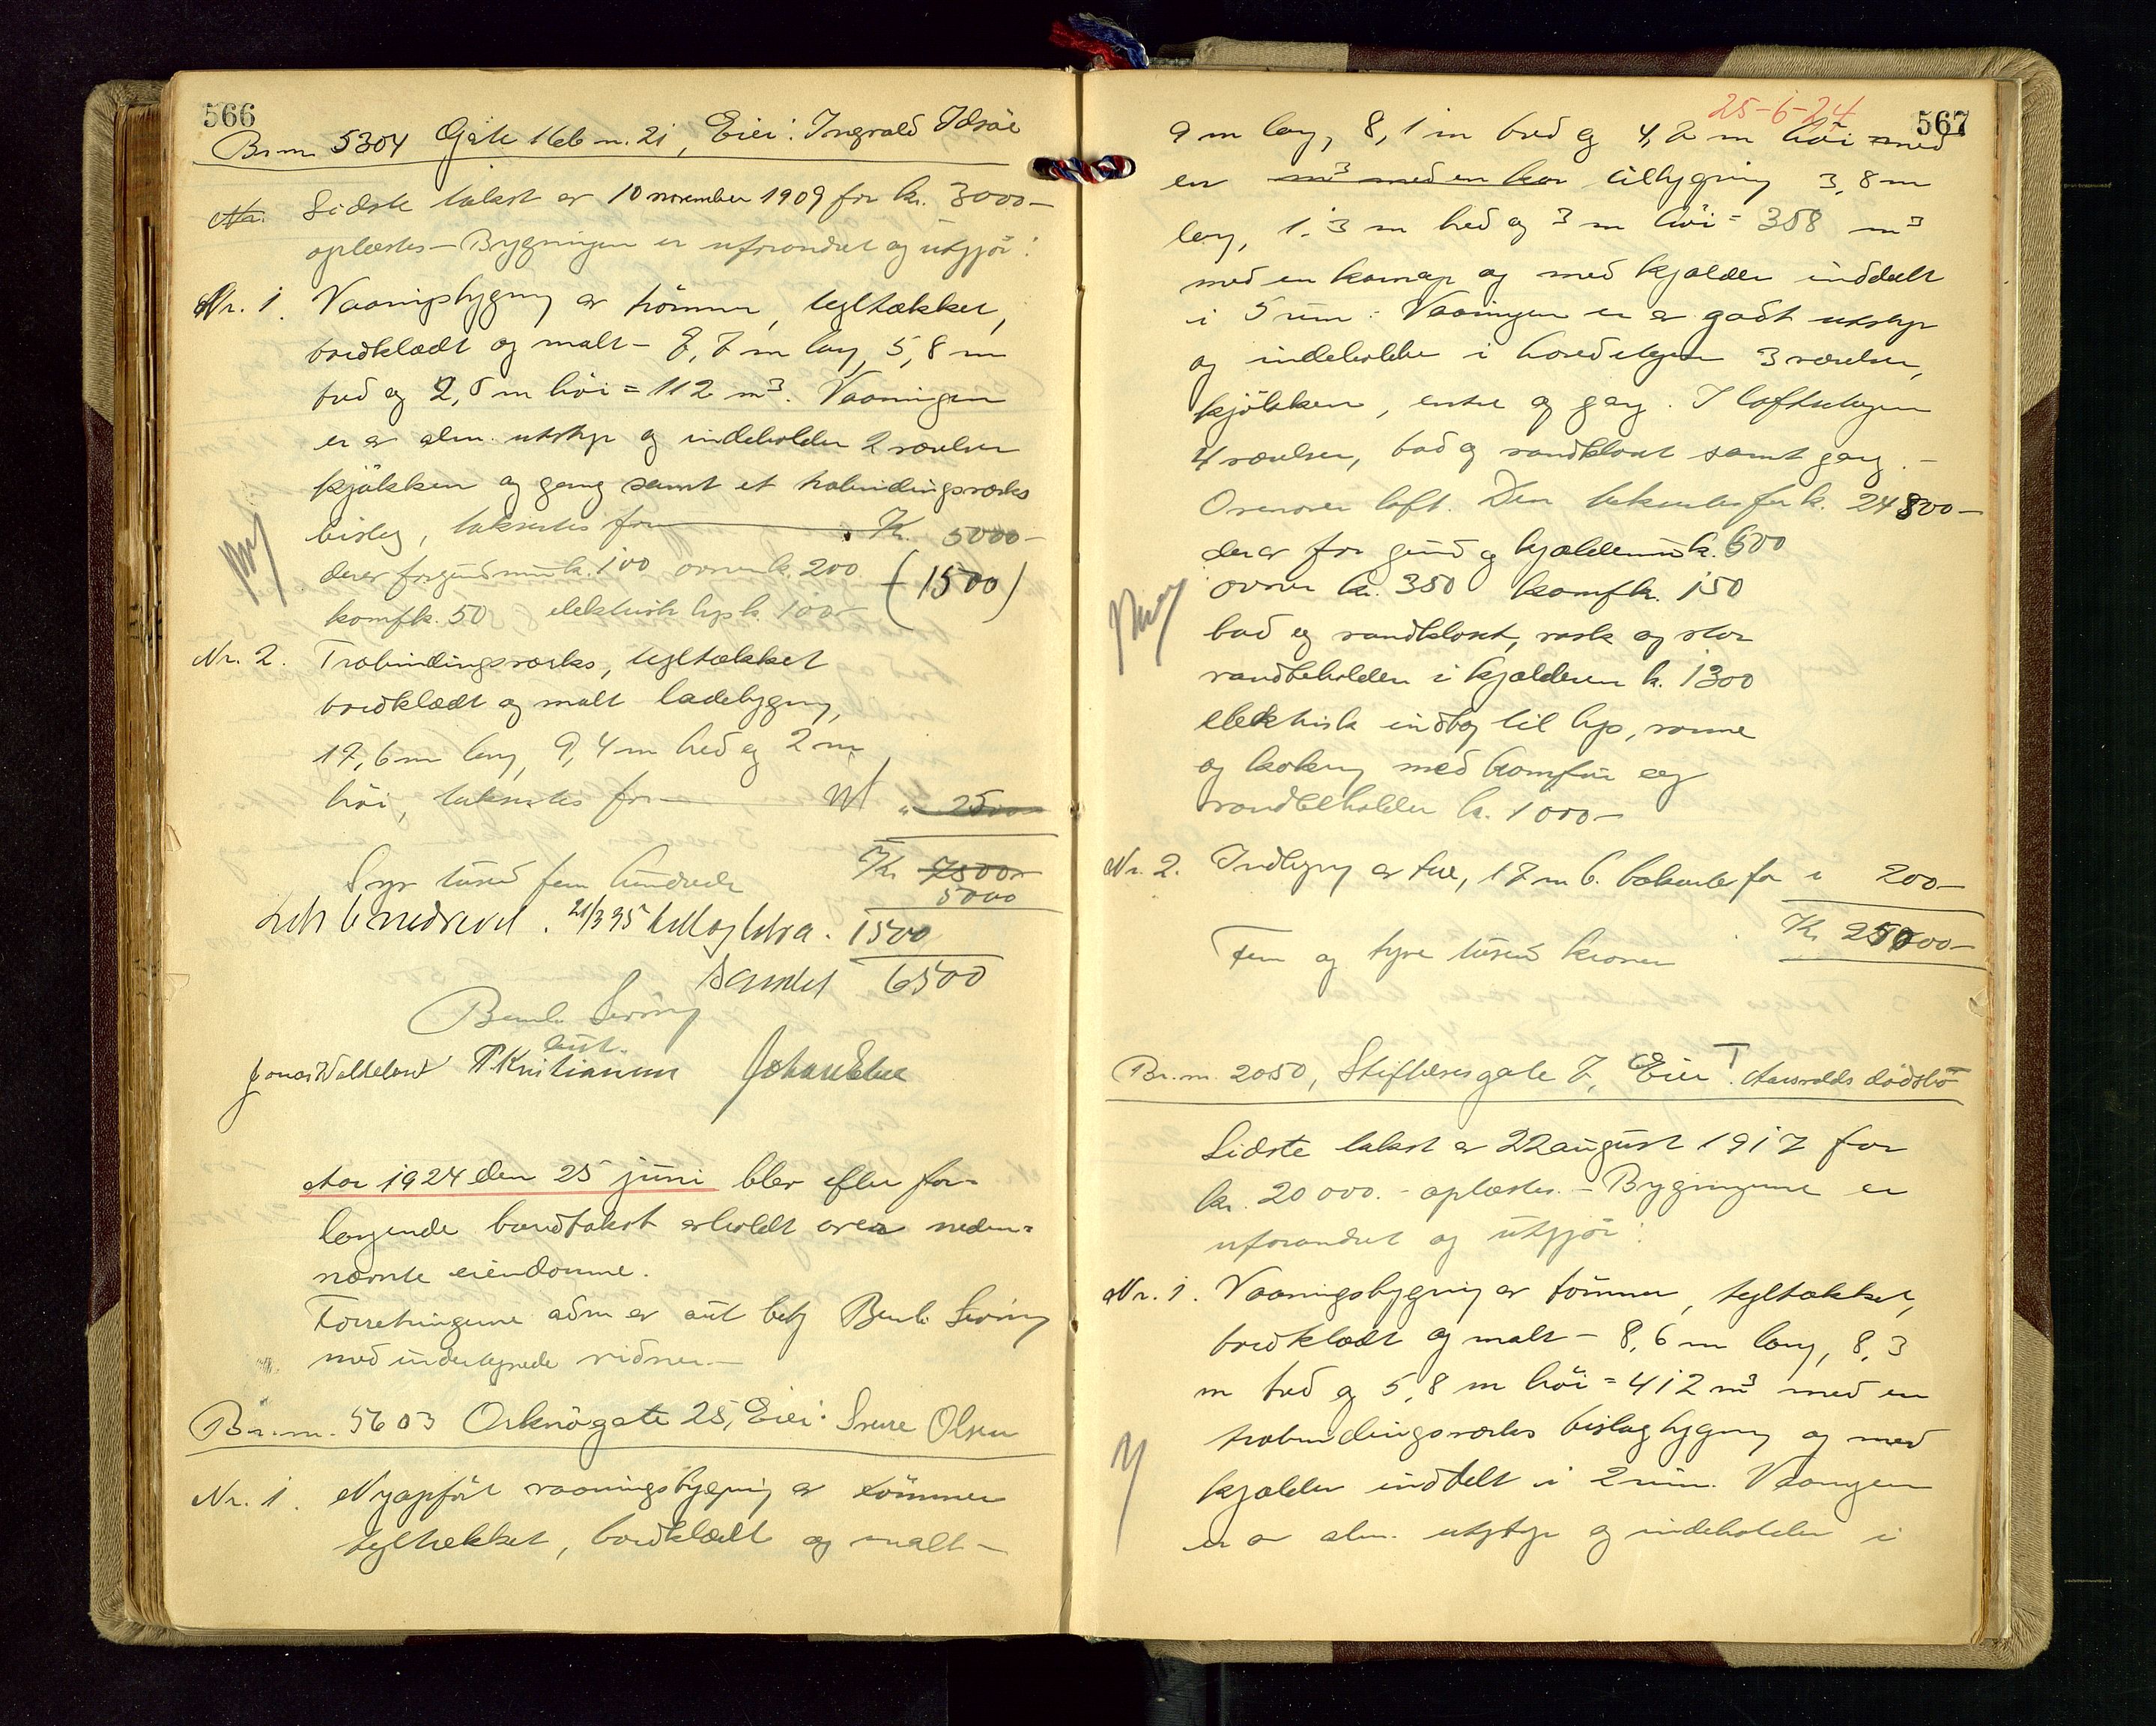 566
Br.nr. 5304 Gate 166 nr. 21, Eier: Ingvald Idsöe
Nr. Sidste takst er 10 november 1909 for kr. 3000-
oplæstes - Bygningen er uforandret og utgjör:
Nr. 1. Vaaningsbygning av tömmer, tegltækket,
bordklædt og malt - 7,7 m lang, 5,8 m
bred og 2,5 m höi = 112 m³. Vaaningen
er av alm. utstyr og indeholder 2 værelser
kjökken og gang samt et trabindingsverks
bislag, takseres for Kr. 5000-
derav for grundmur k. 100 ovner k. 200 (1500)
komf k. 50 elektrisk lys k. 100-
Nr. 2. Trabindingsverks, tegltækket
bordklædt og malt ladebygning,
17,6 m lang, 9,4 m bred og 2 m
höi, takseres for " 2500
Kr. 7500-
Syv tusend fem hundrede
5000
21/3 35 1500
Samlet 6500
Bernh. Sering
aut.
Jonas Walleland T Kristiansen Johan Eltar
Aar 1924 den 25 juni blev efter for-
langende brandtakst avholdt over neden-
nævnte eiendomme.
Forretningerne adm av aut best Bernh. Sering
med undertegnede vidner -
Br.nr. 5603 Orknögate 25, Eier: Sverre Olsen
Nr. 1. Nyopfört vaaningsbygning av tömmer
tegltækket, bordklædt og malt -
25-6-24
567
9 m lang, 8,1 m bred og 4,2 m höi med
en m³ med en kar tilbygning 3,8 m
lang, 1.3 m bred og 3 m höi = 358 m³
med en karnap og med kjælder inddelt
i 5 rum. Vaaningen er av godt utstyr
og indeholder i hovedetagen 3 værelser,
kjökken, entre og gang. I loftsetagen
4 værelser, bad og vandkloset samt gang. -
Ovenover loft. Den takseres for k. 24800-
derav for grund og kjældermur k. 600
ovner kr. 350 komf k. 150
bad og vandkloset, vask og stor
vandbeholder i kjælderen k. 1300
elektrisk indlæg til lys, varme
og kokning med komfur og
vandbeholder k. 1000-
Nr. 2. Indhegning av træ, 17 m l. takseres for " 200-
Kr. 25000-
Fem og tyve tusend kroner
Br.nr. 2050, Stiftelsesgate 7, Eier T. Aarvolds dödsbo
Sidste takst er 22 august 1917 for
kr. 20 000. - oplæstes. - Bygningene er
uforandret og utgjör:
Nr. 1. Vaaningsbygning av tömmer, tegltækket,
bordklædt og malt - 8,6 m lang, 8,3
m bred og 5,8 m höi = 412 m³ med en
trabindingsverks bislagbygning og med
kjælder inddelt i 2 rum. Vaaningen
er av alm. utstyr og indeholder i